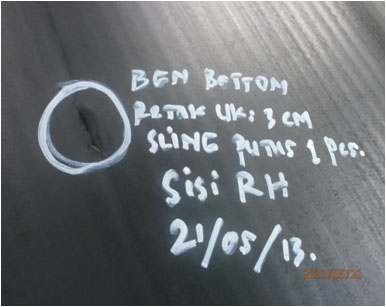 BEN BOTTOM
RETAK UK: 3 CM
SLING PUTUS 1 PCS.
SiSi RH
21/05/13.